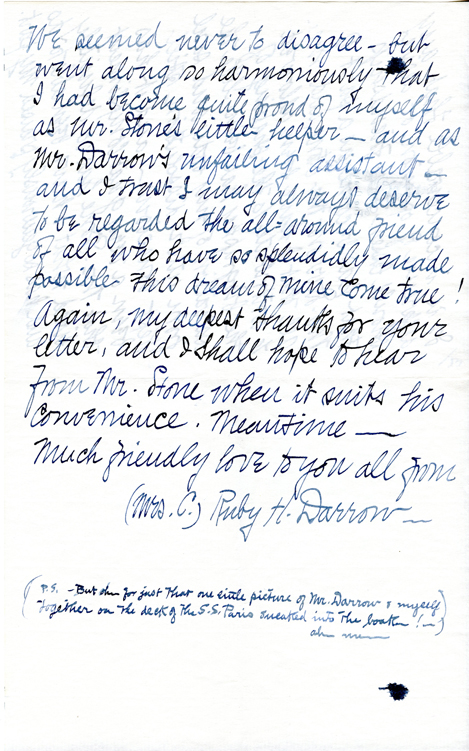 We seemed never to disagree - but
went along so harmoniously that
I had become quite proud of myself
as Mr. Stone's little helper - and as
Mr. Darrow's unfailing assistant -
and I trust I may always deserve
to be regarded the all-around friend
of all who have so splendidly made
possible this dream of mine come true!
Again, my deepest thanks for your
letter, and I shall hope to hear
from Mr. Stone when it suits his
convenience. Meantime —
Much friendly love to you all from
(Mrs. C.) Ruby H. Darrow —
(P.S. - But ohm for just that one little picture of Mr. Darrow & myself
together on the deck of the S.S. Paris sneaked into the book ! -)